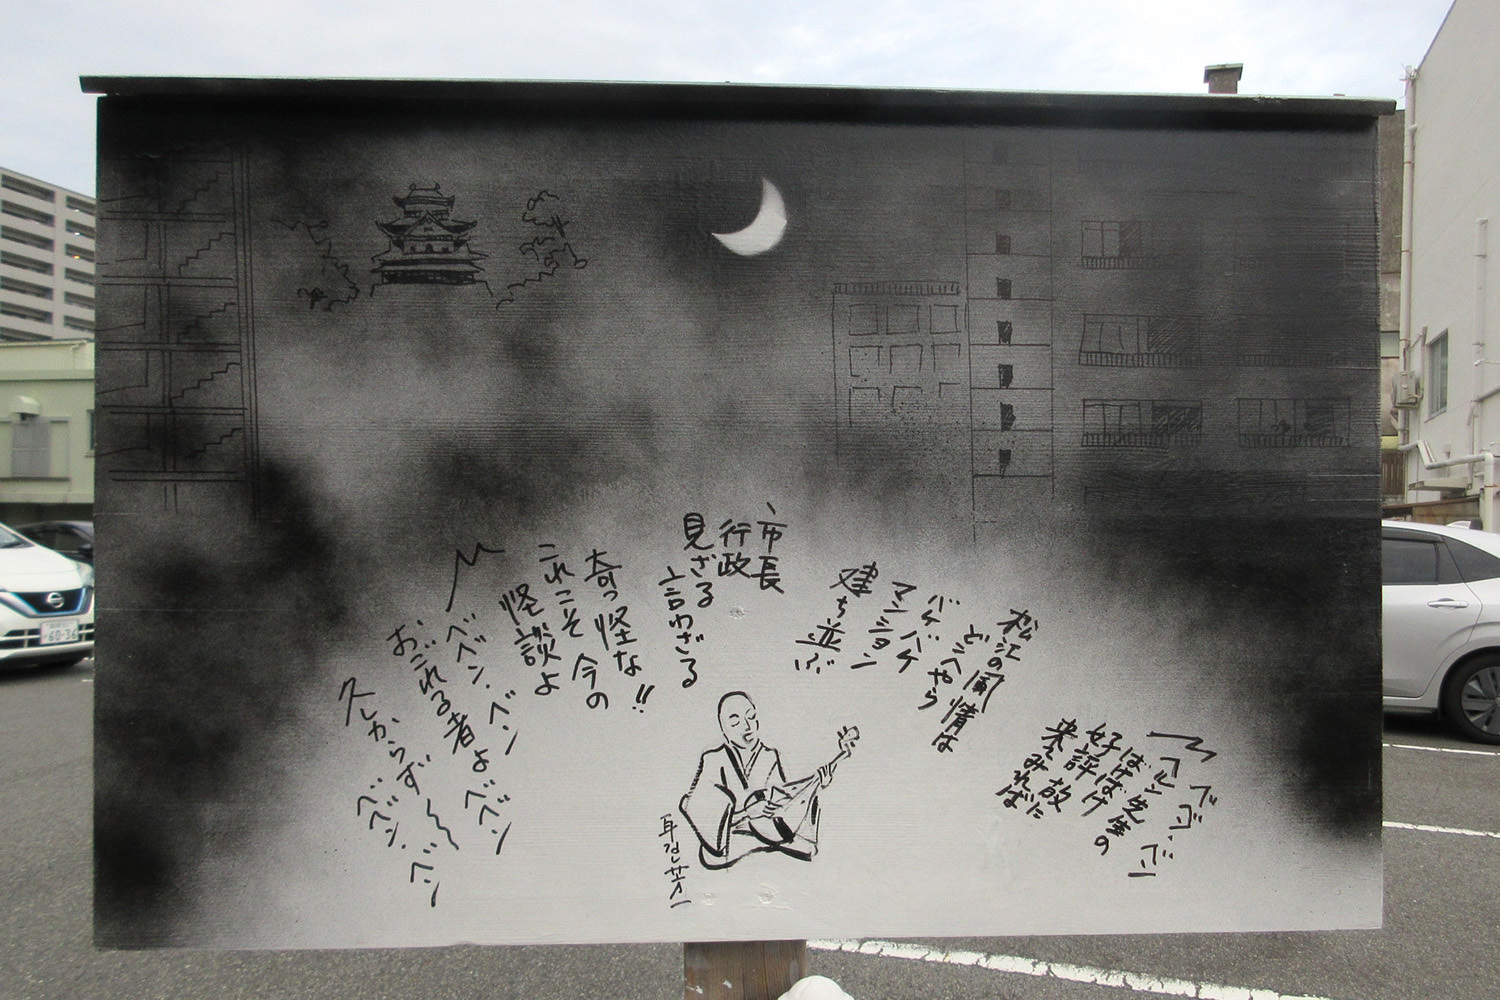 〽ベベン・ベン
ヘルン先生の
ばけばけ
好評 故に
来てみれば
松江の風情は
どこへやら
バケバケ
マンション
建ち並ぶ
市長
行政
見ざる
言わざる
奇っ怪な!!
これこそ 今の
怪談よ
〽ベベン・ベン
おごれる者よ ベベン
久しからず〜〜
ベベン・ベン
耳なし芳一
60-36